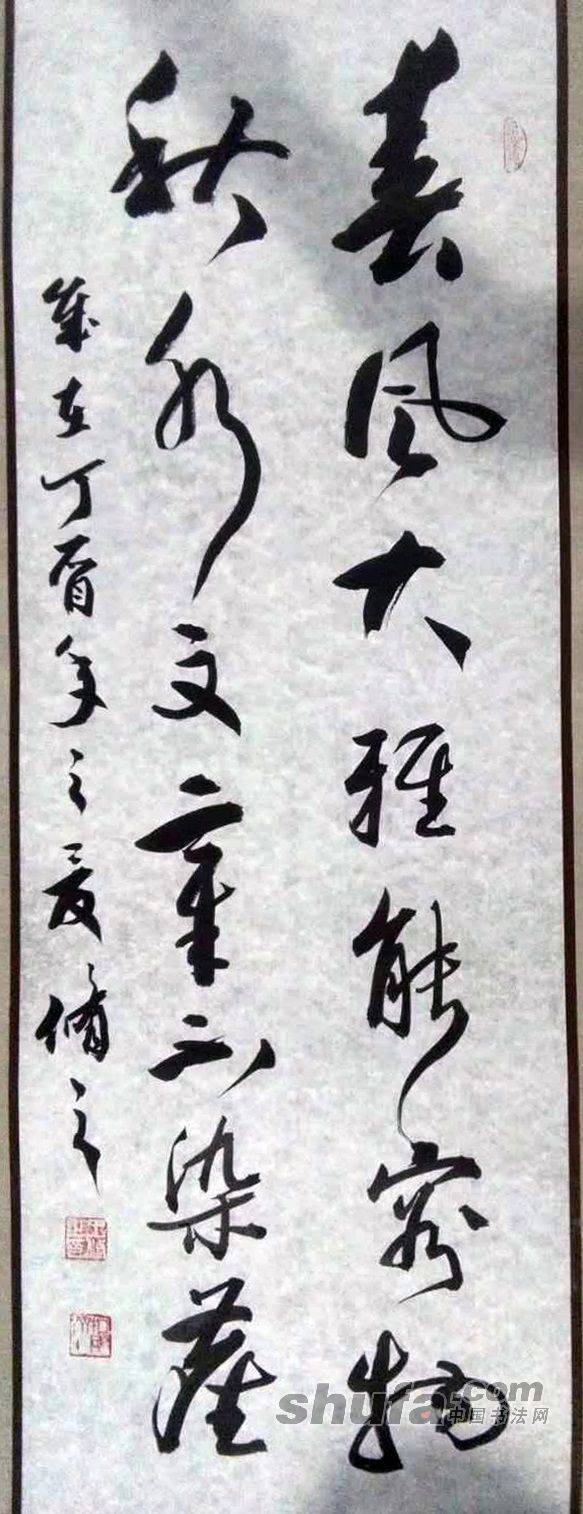 春风大雅能容物
秋水文章不染尘
岁在丁酉年之夏脩之
shufa.com
中国书法网